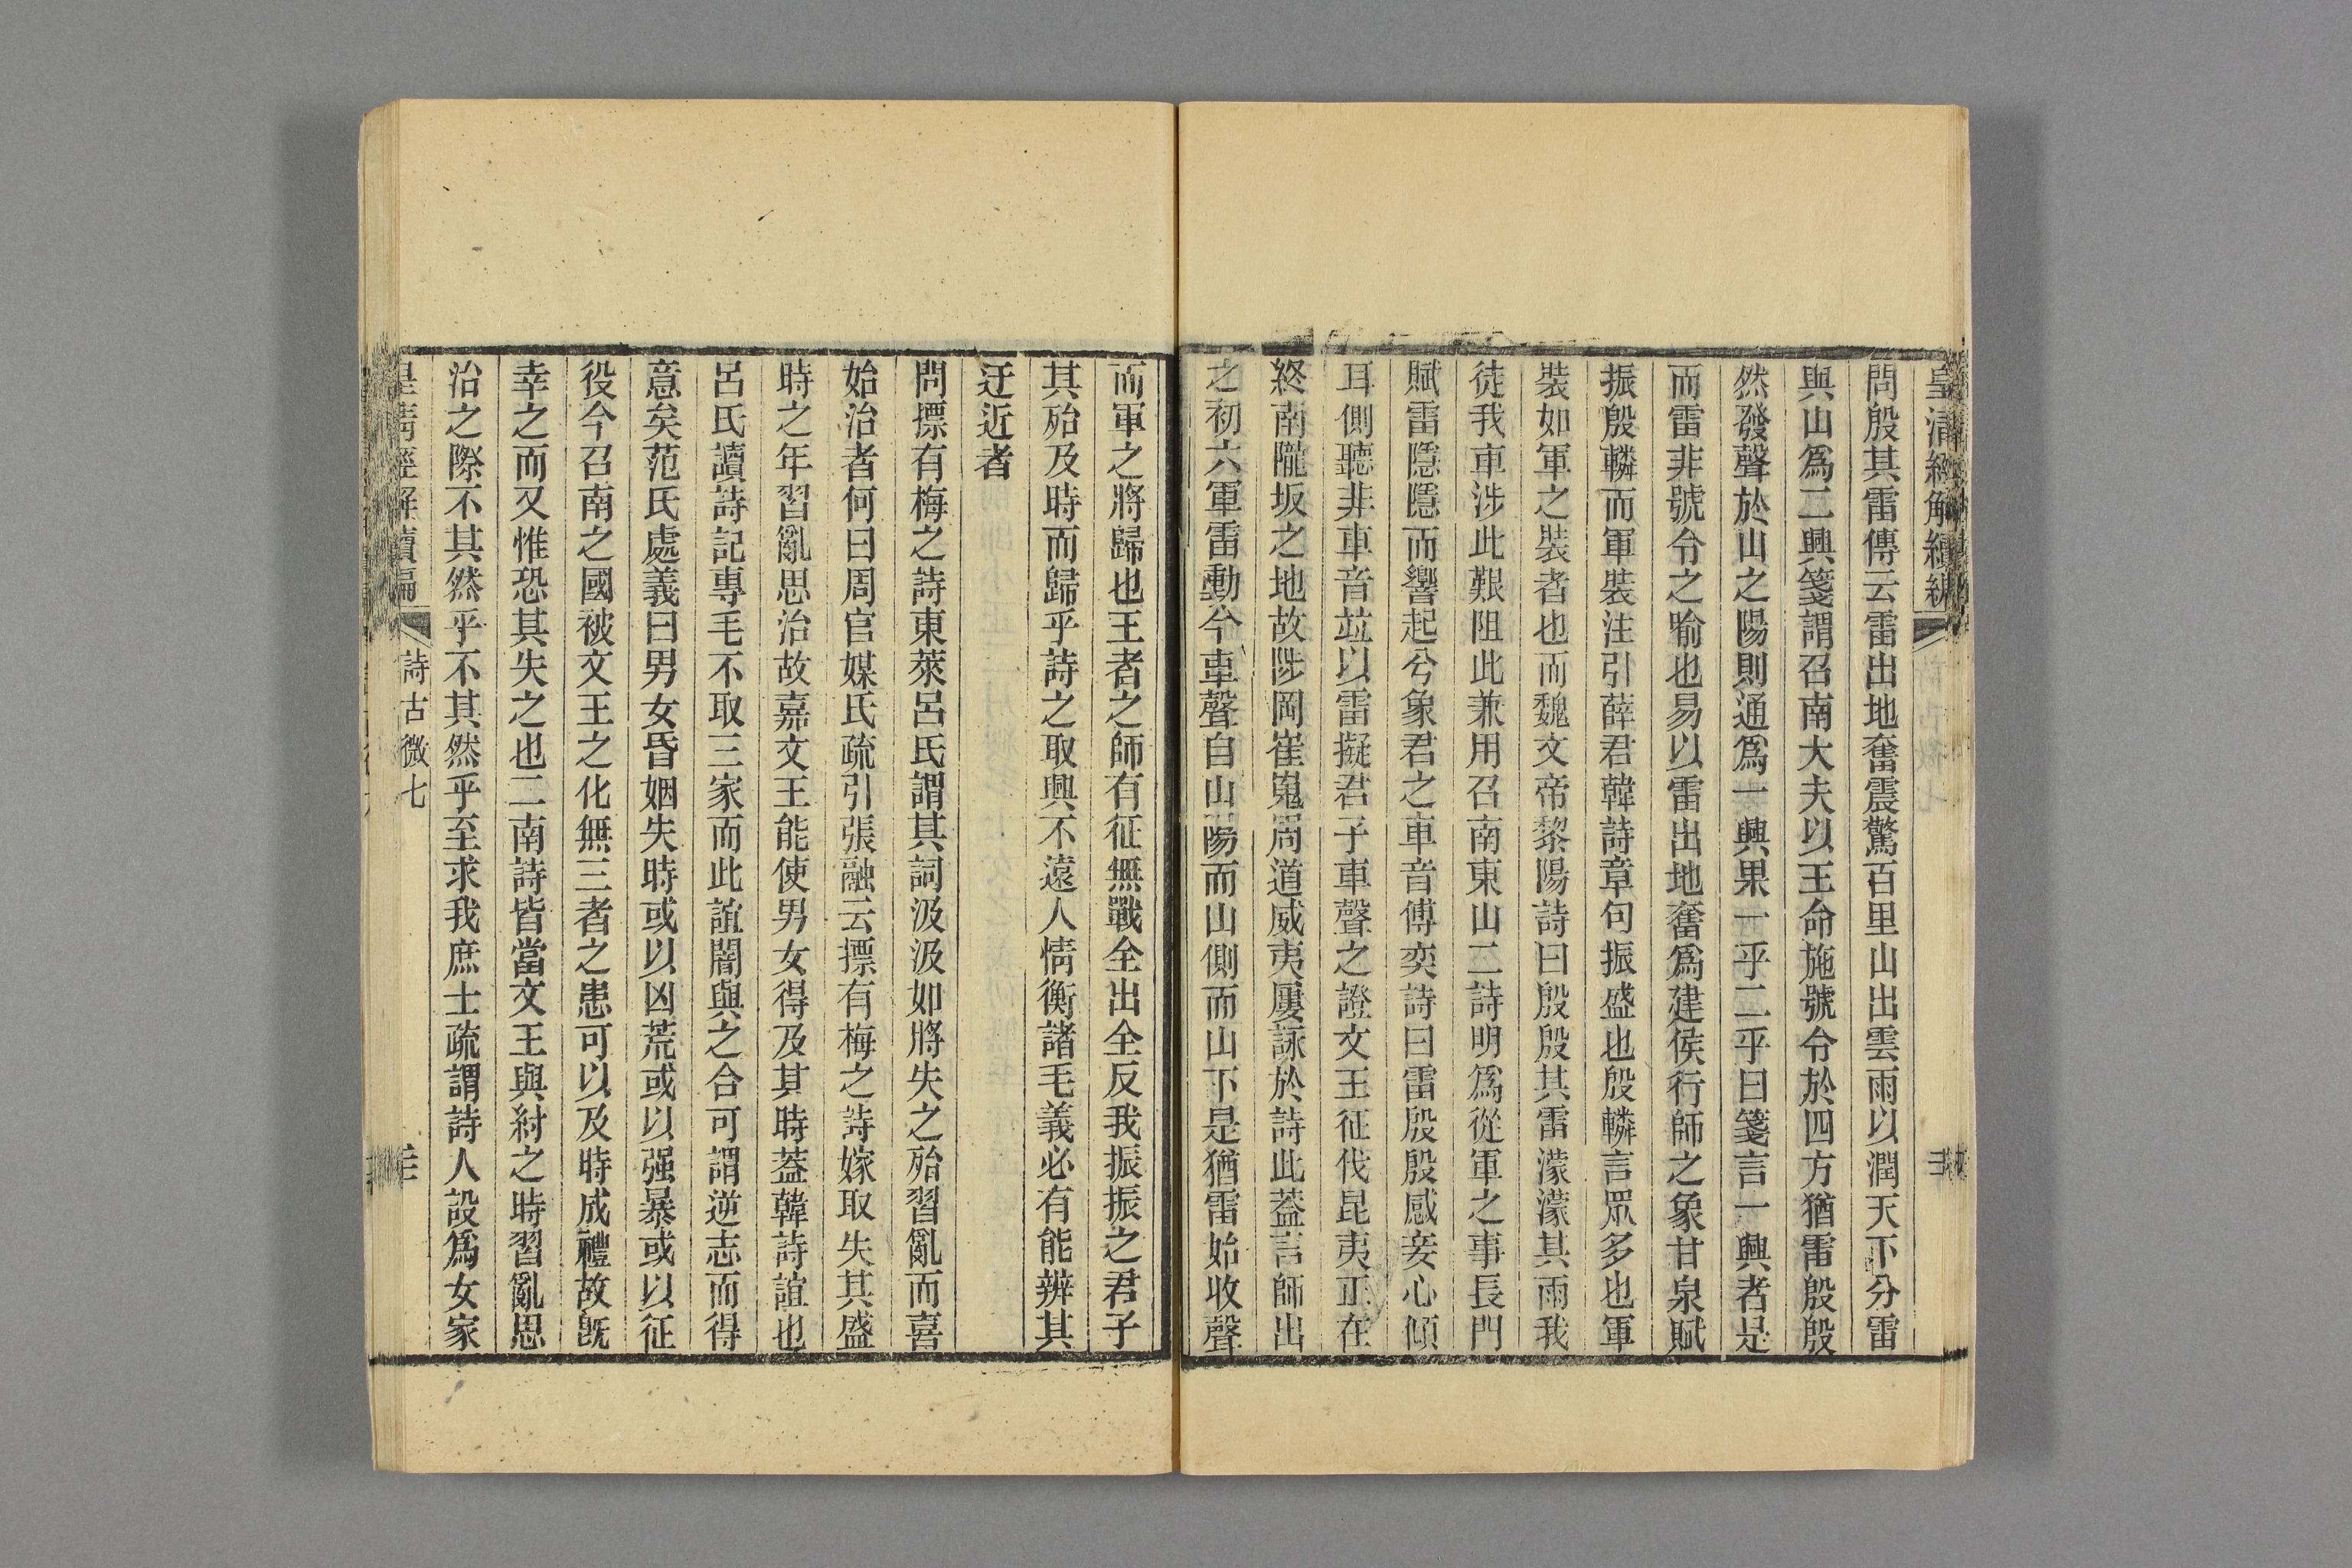 皇清經解續編
問殷其雷傳云雷出地奮震驚百里山出雲雨以潤天下分雷
與山爲二興箋謂召南大夫以王命施號令於四方猶雷殷殷
然發聲於山之陽則通爲一興果一乎二乎曰箋言一興者是
而雷非號令之喻也易以雷出地奮爲建侯行師之象甘泉賦
振殷轔而軍裝注引薛君韓詩章句振盛也殷轔言眾多也軍
裝如軍之裝者也而魏文帝黎陽詩曰殷殷其雷濛濛其雨我
徒我車涉此艱阻此兼用召南東山二詩明爲從軍之事長門
賦雷隱隱而響起兮象君之車音傅奕詩曰雷殷殷感妾心傾
耳側聽非車音竝以雷擬君子車聲之證文王征伐昆夷正在
終南隴坂之地故陟岡崔嵬周道威夷屢詠於詩此蓋言師出
之初六軍雷動今車聲自山陽而山側而山下是猶雷始收聲
而軍之將歸也王者之師有征無戰全出全反我振振之君子
其殆及時而歸乎詩之取興不遠人情衡諸毛義必有能辨其
迂近者
問摽有梅之詩東萊呂氏謂其詞汲汲如將失之殆習亂而喜
始治者何曰周官媒氏疏引張融云摽有梅之詩嫁取失其盛
時之年習亂思治故嘉文王能使男女得及其時蓋韓詩誼也
呂氏讀詩記專毛不取三家而此誼闇與之合可謂逆志而得
意矣范氏處義曰男女昏姻失時或以凶荒或以强暴或以征
役今召南之國被文王之化無三者之患可以及時成禮故旣
幸之而又惟恐其失之也二南詩皆當文王與紂之時習亂思
治之際不其然乎不其然乎至求我庶士疏謂詩人設爲女家
皇清經解續編
詩古微七